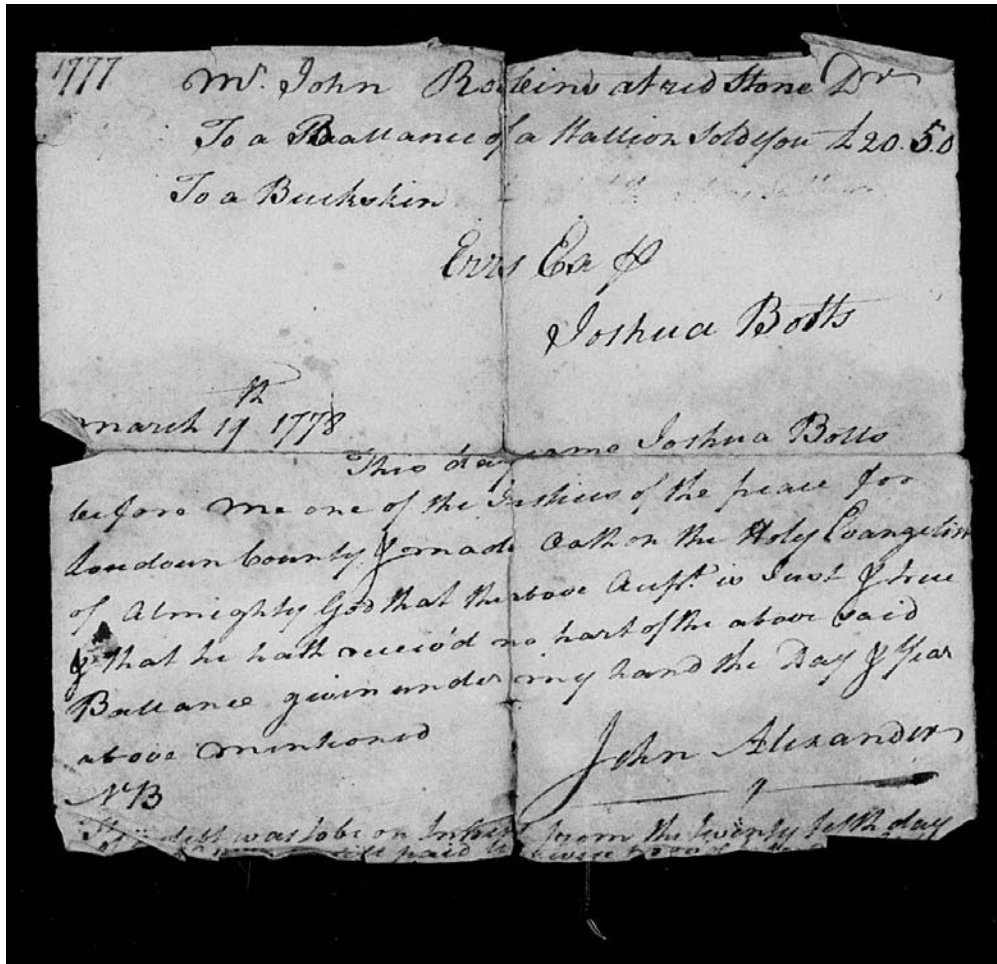 1777 Mr. John at red Stone Dr
To a Ballance of a Stallion Sold you £20.5.0
To a Buckskin
Errs Ex pr
Joshua Botts
march 19th 1778
This day came Joshua Botts
before me one of the Justices of the peace for
Loudoun County & made Oath on the Holy Evangelist
of Almighty God that the above Acpt. is Just & true
& that he hath receiv'd no part of the above said
Ballance given under my hand the Day & Year
above mentioned
John Alexander
NB
debt was to be on Intrest from the twenty fifth day
till paid